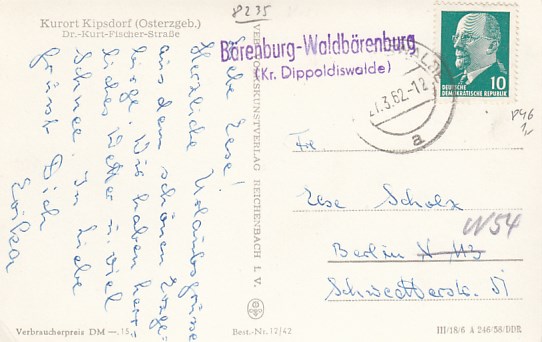 Kurort Kipsdorf (Osterzgeb.)
Dr.-Kurt-Fischer-Straße
8235
Liebe Else!
Herzliche Urlaubsgrüsse
aus dem schönen Erzge-
birge. Wir haben herr-
liches Wetter u. viel
Schnee. In Liebe
grüsst Dich
Erika
Verbraucherpreis DM —.15
VERLAG
KUNSTVERLAG REICHENBACH I. V.
Best.-Nr. 12/42
Bärenburg-Waldbärenburg
(Kr. Dippoldiswalde)
.3.62.-12
a
DEUTSCHE
DEMOKRATISCHE REPUBLIK
10
Else Scholz
N54
Berlin N 113
Schwedterstr. 51
III/18/6 A 246/58/DDR